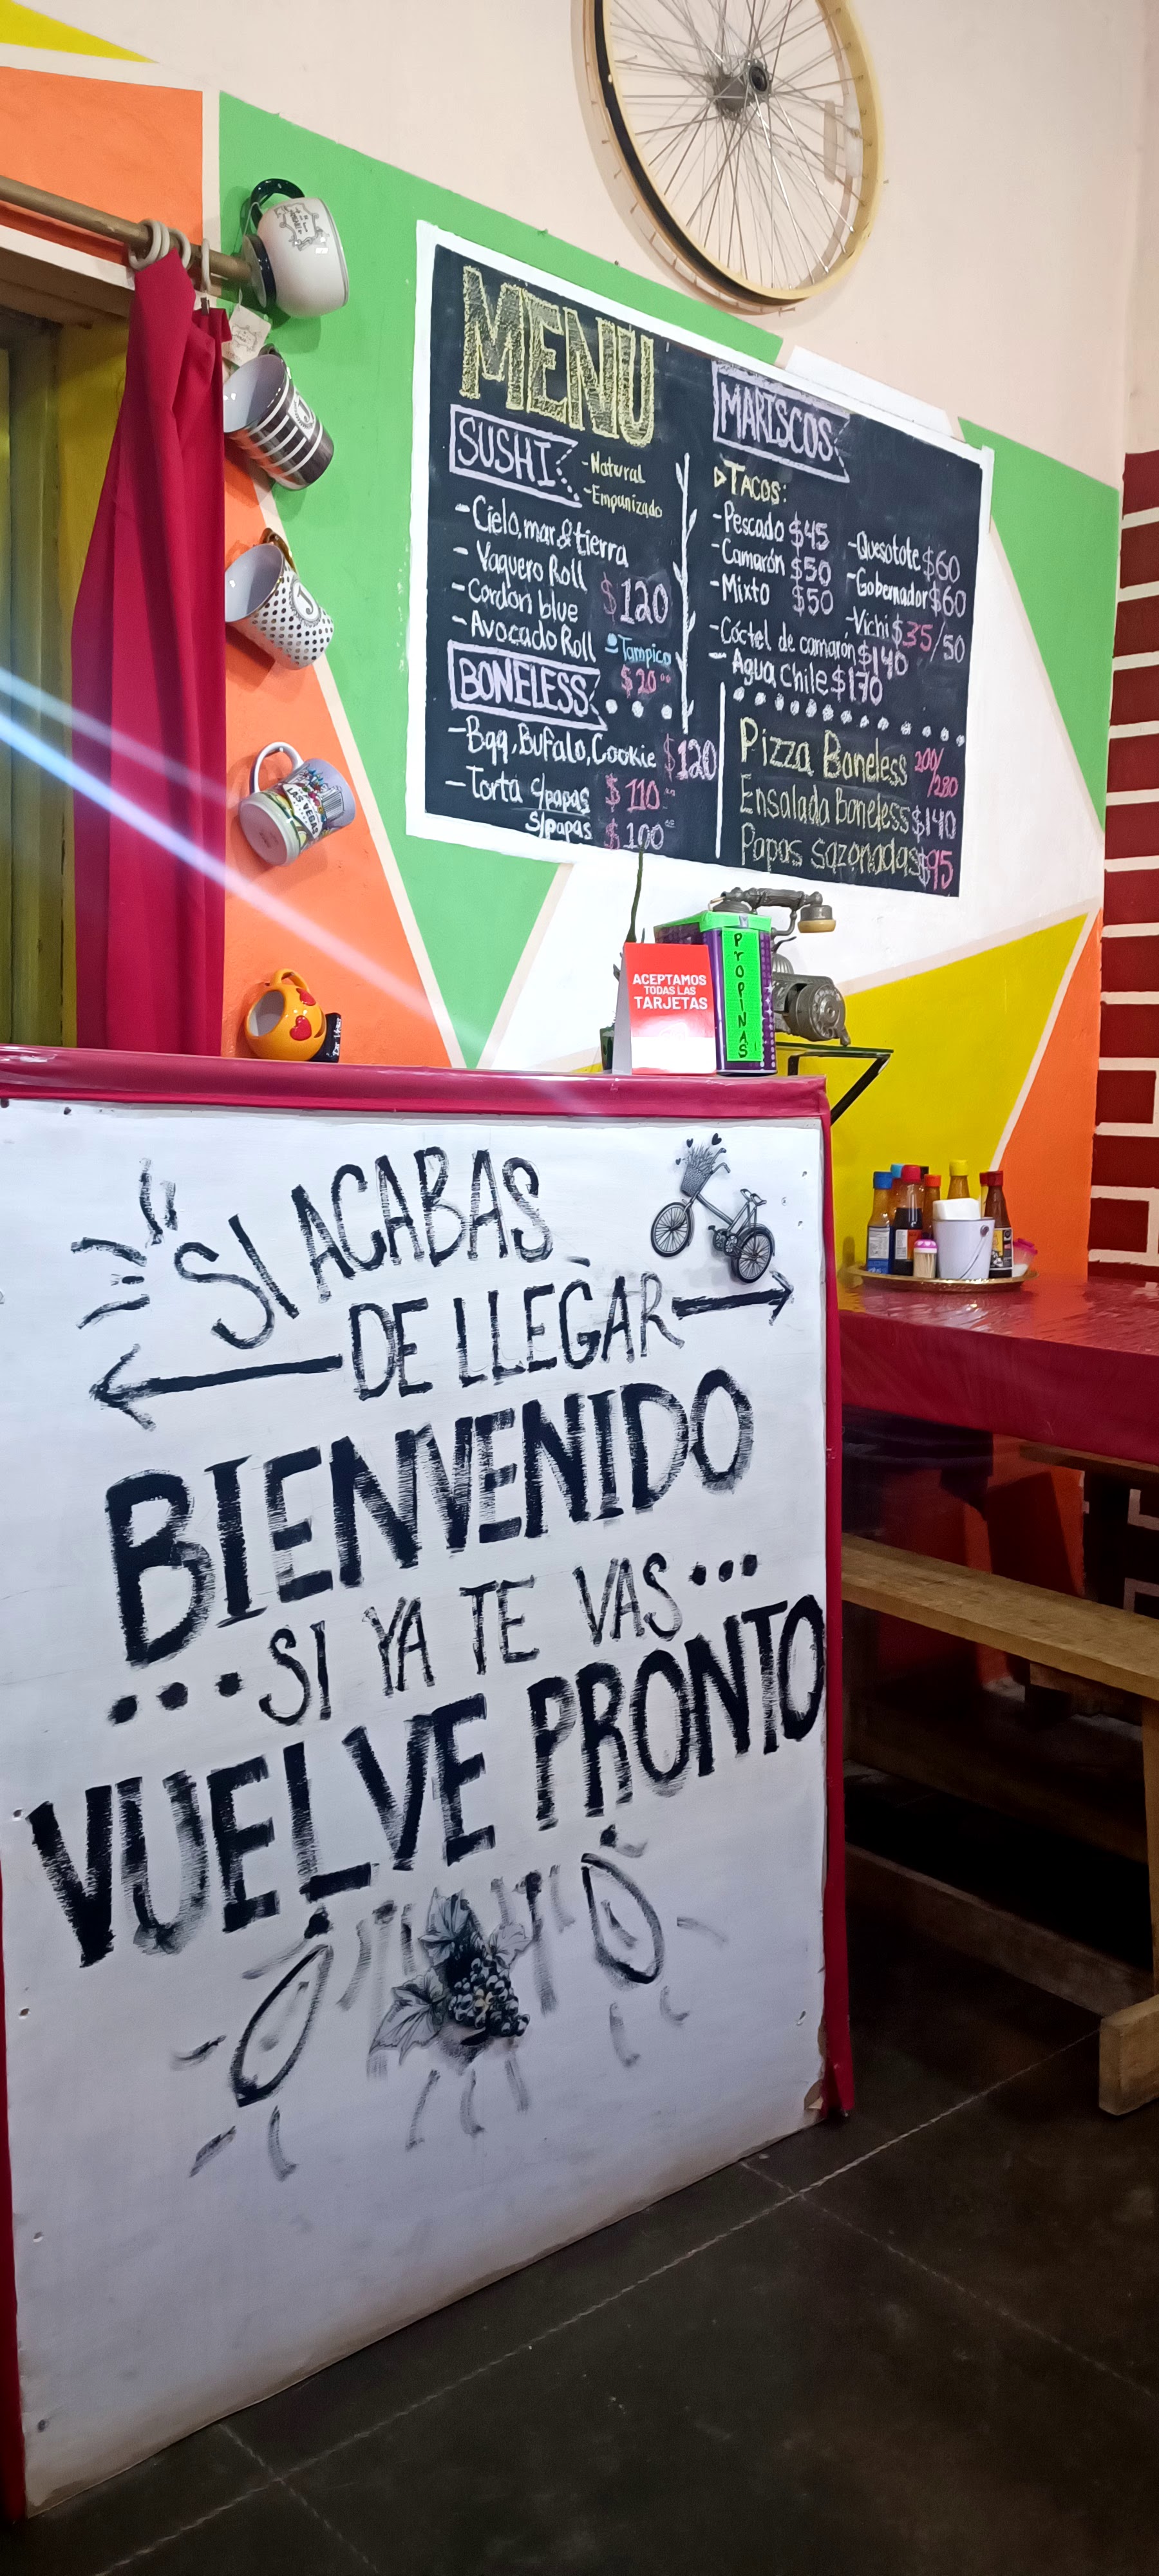 MENU
SUSHI
-Natural
-Empanizado
-Cielo, mar & tierra
- Vaquero Roll
-Cordon blue
-Avocado Roll
$120
•Tampico
$20°°
BONELESS
-Bqq, Bufalo, Cookie $120
-Torta c/papas $110
s/papas $100
MARISCOS
TACOS:
-Pescado $45
-Camarón $50
-Mixto $50
-Quesotote $60
-Gobernador $60
-Vichi $35/50
-Cóctel de camarón $140
- Agua Chile $170
Pizza Boneless 200/280
Ensalada Boneless $140
Papas sazonadas $95
ACEPTAMOS
TODAS LAS
TARJETAS
PROPINAS
SI ACABAS
DE LLEGAR
BIENVENIDO
...SI YA TE VAS...
VUELVE PRONTO